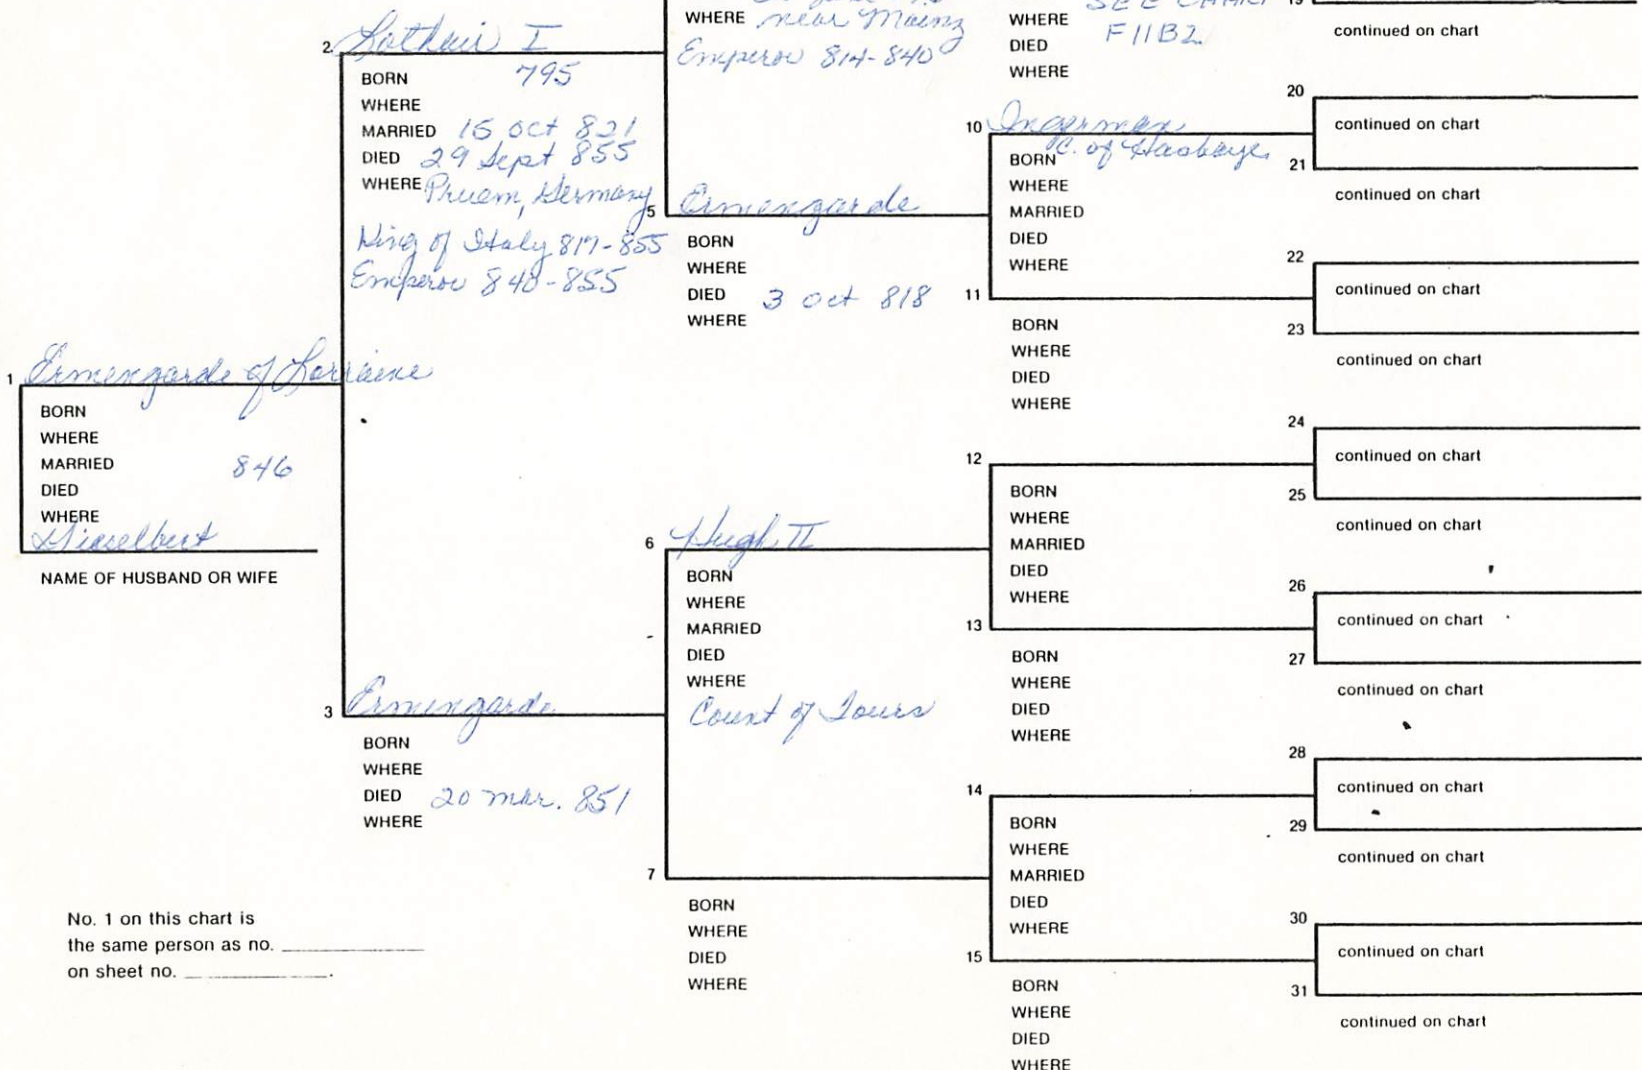 1 Ermengarde of Lorraine
BORN
WHERE
MARRIED 846
DIED
WHERE
Giselbert
NAME OF HUSBAND OR WIFE
No. 1 on this chart is
the same person as no.
on sheet no. .
2 Lothair I
BORN 795
WHERE
MARRIED 15 Oct 821
DIED 29 Sept 855
WHERE Pruem, Germany
King of Italy 817-855
Emperor 840-855
3 Ermengarde
BORN
WHERE
DIED 20 Mar. 851
WHERE
WHERE near Mainz
Emperor 814-840
5 Ermengarde
BORN
WHERE
DIED 3 Oct 818
WHERE
6 Hugh II
BORN
WHERE
MARRIED
DIED
WHERE
Count of Tours
7
BORN
WHERE
DIED
WHERE
SEE CHART
WHERE F11B2
DIED
WHERE
10 Ingerman
C. of Hasbaye
BORN
WHERE
MARRIED
DIED
WHERE
11
BORN
WHERE
DIED
WHERE
12
BORN
WHERE
MARRIED
DIED
WHERE
13
BORN
WHERE
DIED
WHERE
14
BORN
WHERE
MARRIED
DIED
WHERE
15
BORN
WHERE
DIED
WHERE
19
continued on chart
20
continued on chart
21
continued on chart
22
continued on chart
23
continued on chart
24
continued on chart
25
continued on chart
26
continued on chart
27
continued on chart
28
continued on chart
29
continued on chart
30
continued on chart
31
continued on chart